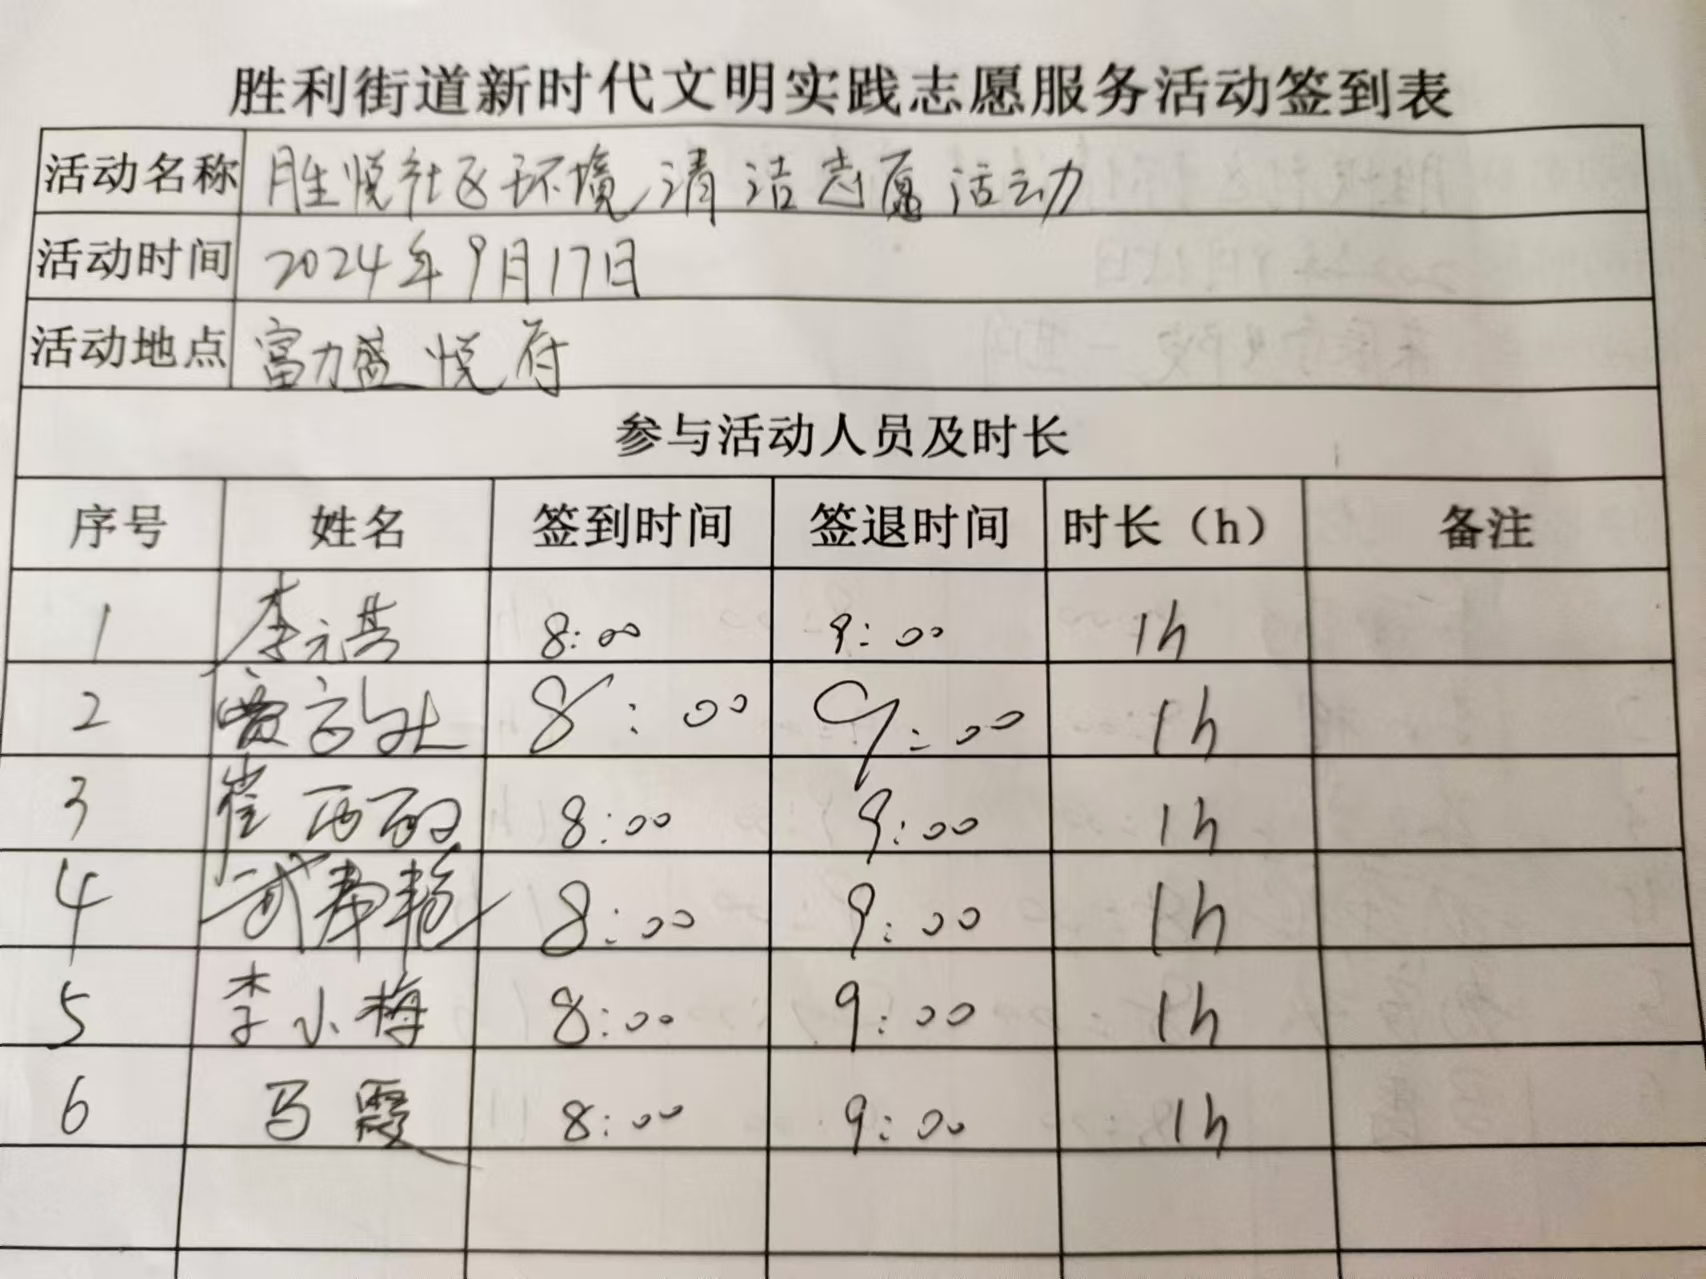 胜利街道新时代文明实践志愿服务活动签到表
活动名称 胜悦社区环境清洁志愿活动
活动时间 2024年9月17日
活动地点 富力盛悦府
参与活动人员及时长
序号 姓名 签到时间 签退时间 时长（h） 备注
1 李元 8:00 9:00 1h
2 8:00 9:00 1h
3 崔西 8:00 9:00 1h
4 武 8:00 9:00 1h
5 李小梅 8:00 9:00 1h
6 马霞 8:00 9:00 1h